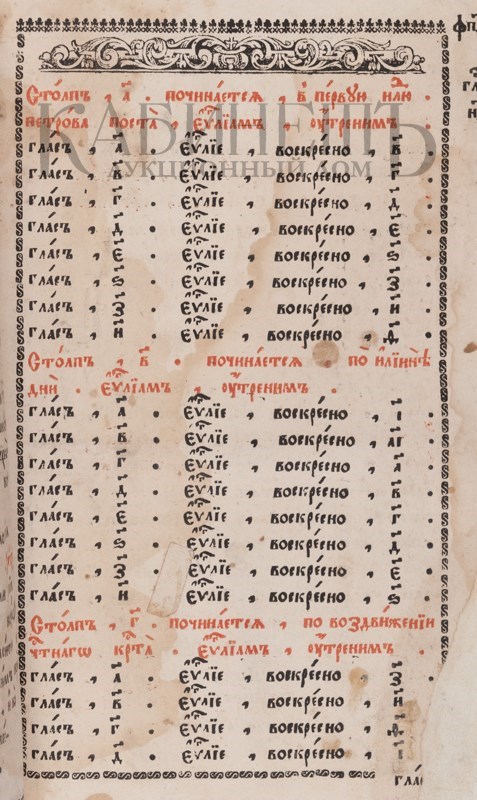 Сто́лпъ , а҃ . почина́ется , в пе́рвую нл҃ю .
петрова поста̀ , еѵⷢ҇лїамъ , ѹ҆́тренимъ .
гла́съ , а҃ . еѵⷢ҇лїе , воскре́сно , в҃ .
гла́съ , в҃ . еѵⷢ҇лїе , воскре́сно , г҃ .
гла́съ , г҃ . еѵⷢ҇лїе , воскре́сно , д҃ .
гла́съ , д҃ . еѵⷢ҇лїе , воскре́сно , е҃ .
гла́съ , е҃ . еѵⷢ҇лїе , воскре́сно , ѕ҃ .
гла́съ , ѕ҃ . еѵⷢ҇лїе , воскре́сно , з҃ .
гла́съ , з҃ . еѵⷢ҇лїе , воскре́сно , и҃ .
гла́съ , и҃ . еѵⷢ҇лїе , воскре́сно , ѳ҃ .
Сто́лпъ , в҃ . почина́ется . по и҆лїинѣ
днѝ . еѵⷢ҇лїамъ , ѹ҆́тренимъ .
гла́съ , а҃ . еѵⷢ҇лїе , воскре́сно , і҃ .
гла́съ , в҃ . еѵⷢ҇лїе , воскре́сно , аі҃ .
гла́съ , г҃ . еѵⷢ҇лїе , воскре́сно , а҃ .
гла́съ , д҃ . еѵⷢ҇лїе , воскре́сно , в҃ .
гла́съ , е҃ . еѵⷢ҇лїе , воскре́сно , г҃ .
гла́съ , ѕ҃ . еѵⷢ҇лїе , воскре́сно , д҃ .
гла́съ , з҃ . еѵⷢ҇лїе , воскре́сно , е҃ .
гла́съ , и҃ . еѵⷢ҇лїе , воскре́сно , ѕ҃ .
Сто́лпъ , г҃ . почина́ется , по воздви́женїи
чⷭ҇тна́гѡ крⷭ҇та̀ , еѵⷢ҇лїамъ , ѹ҆́тренимъ .
гла́съ , а҃ . еѵⷢ҇лїе , воскре́сно , з҃ .
гла́съ , в҃ . еѵⷢ҇лїе , воскре́сно , и҃
гла́съ , г҃ . еѵⷢ҇лїе , воскре́сно , ѳ҃
гла́съ , д҃ . еѵⷢ҇лїе , воскре́сно , і҃
гла́
КАБИНЕТЪ
АУКЦИОННЫЙ ДОМ